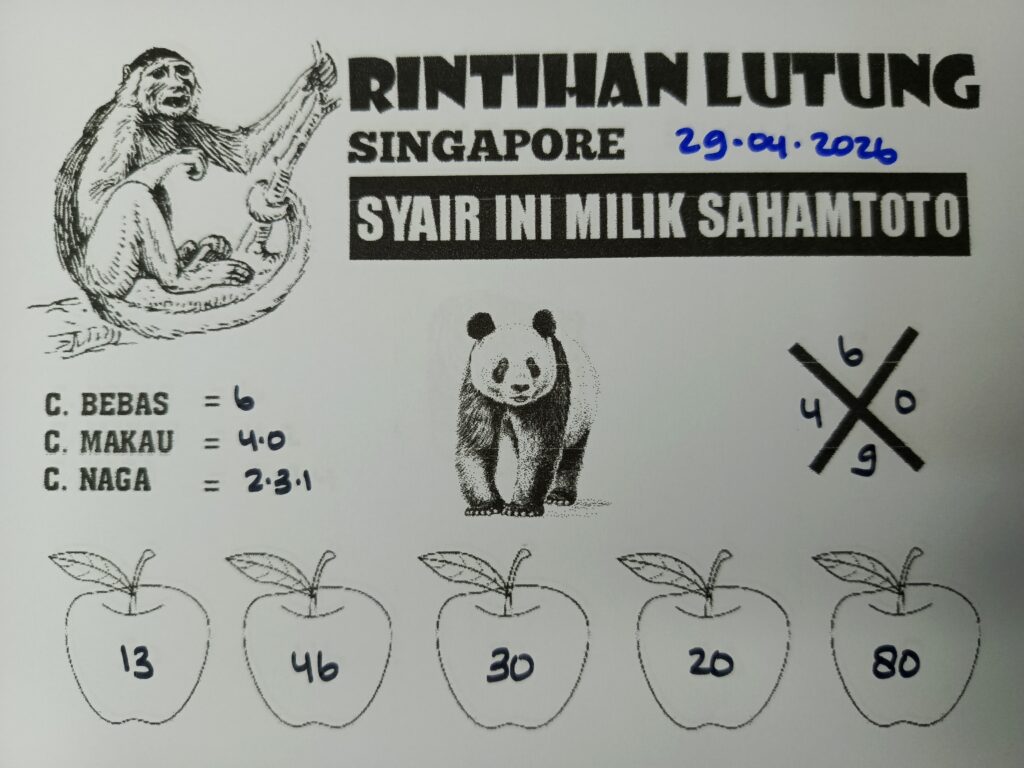 RINTIHAN LUTUNG
SINGAPORE 29.04.2026
SYAIR INI MILIK SAHAMTOTO
C. BEBAS = 6
C. MAKAU = 4.0
C. NAGA = 2.3.1
6
4 0
9
13 46 30 20 80